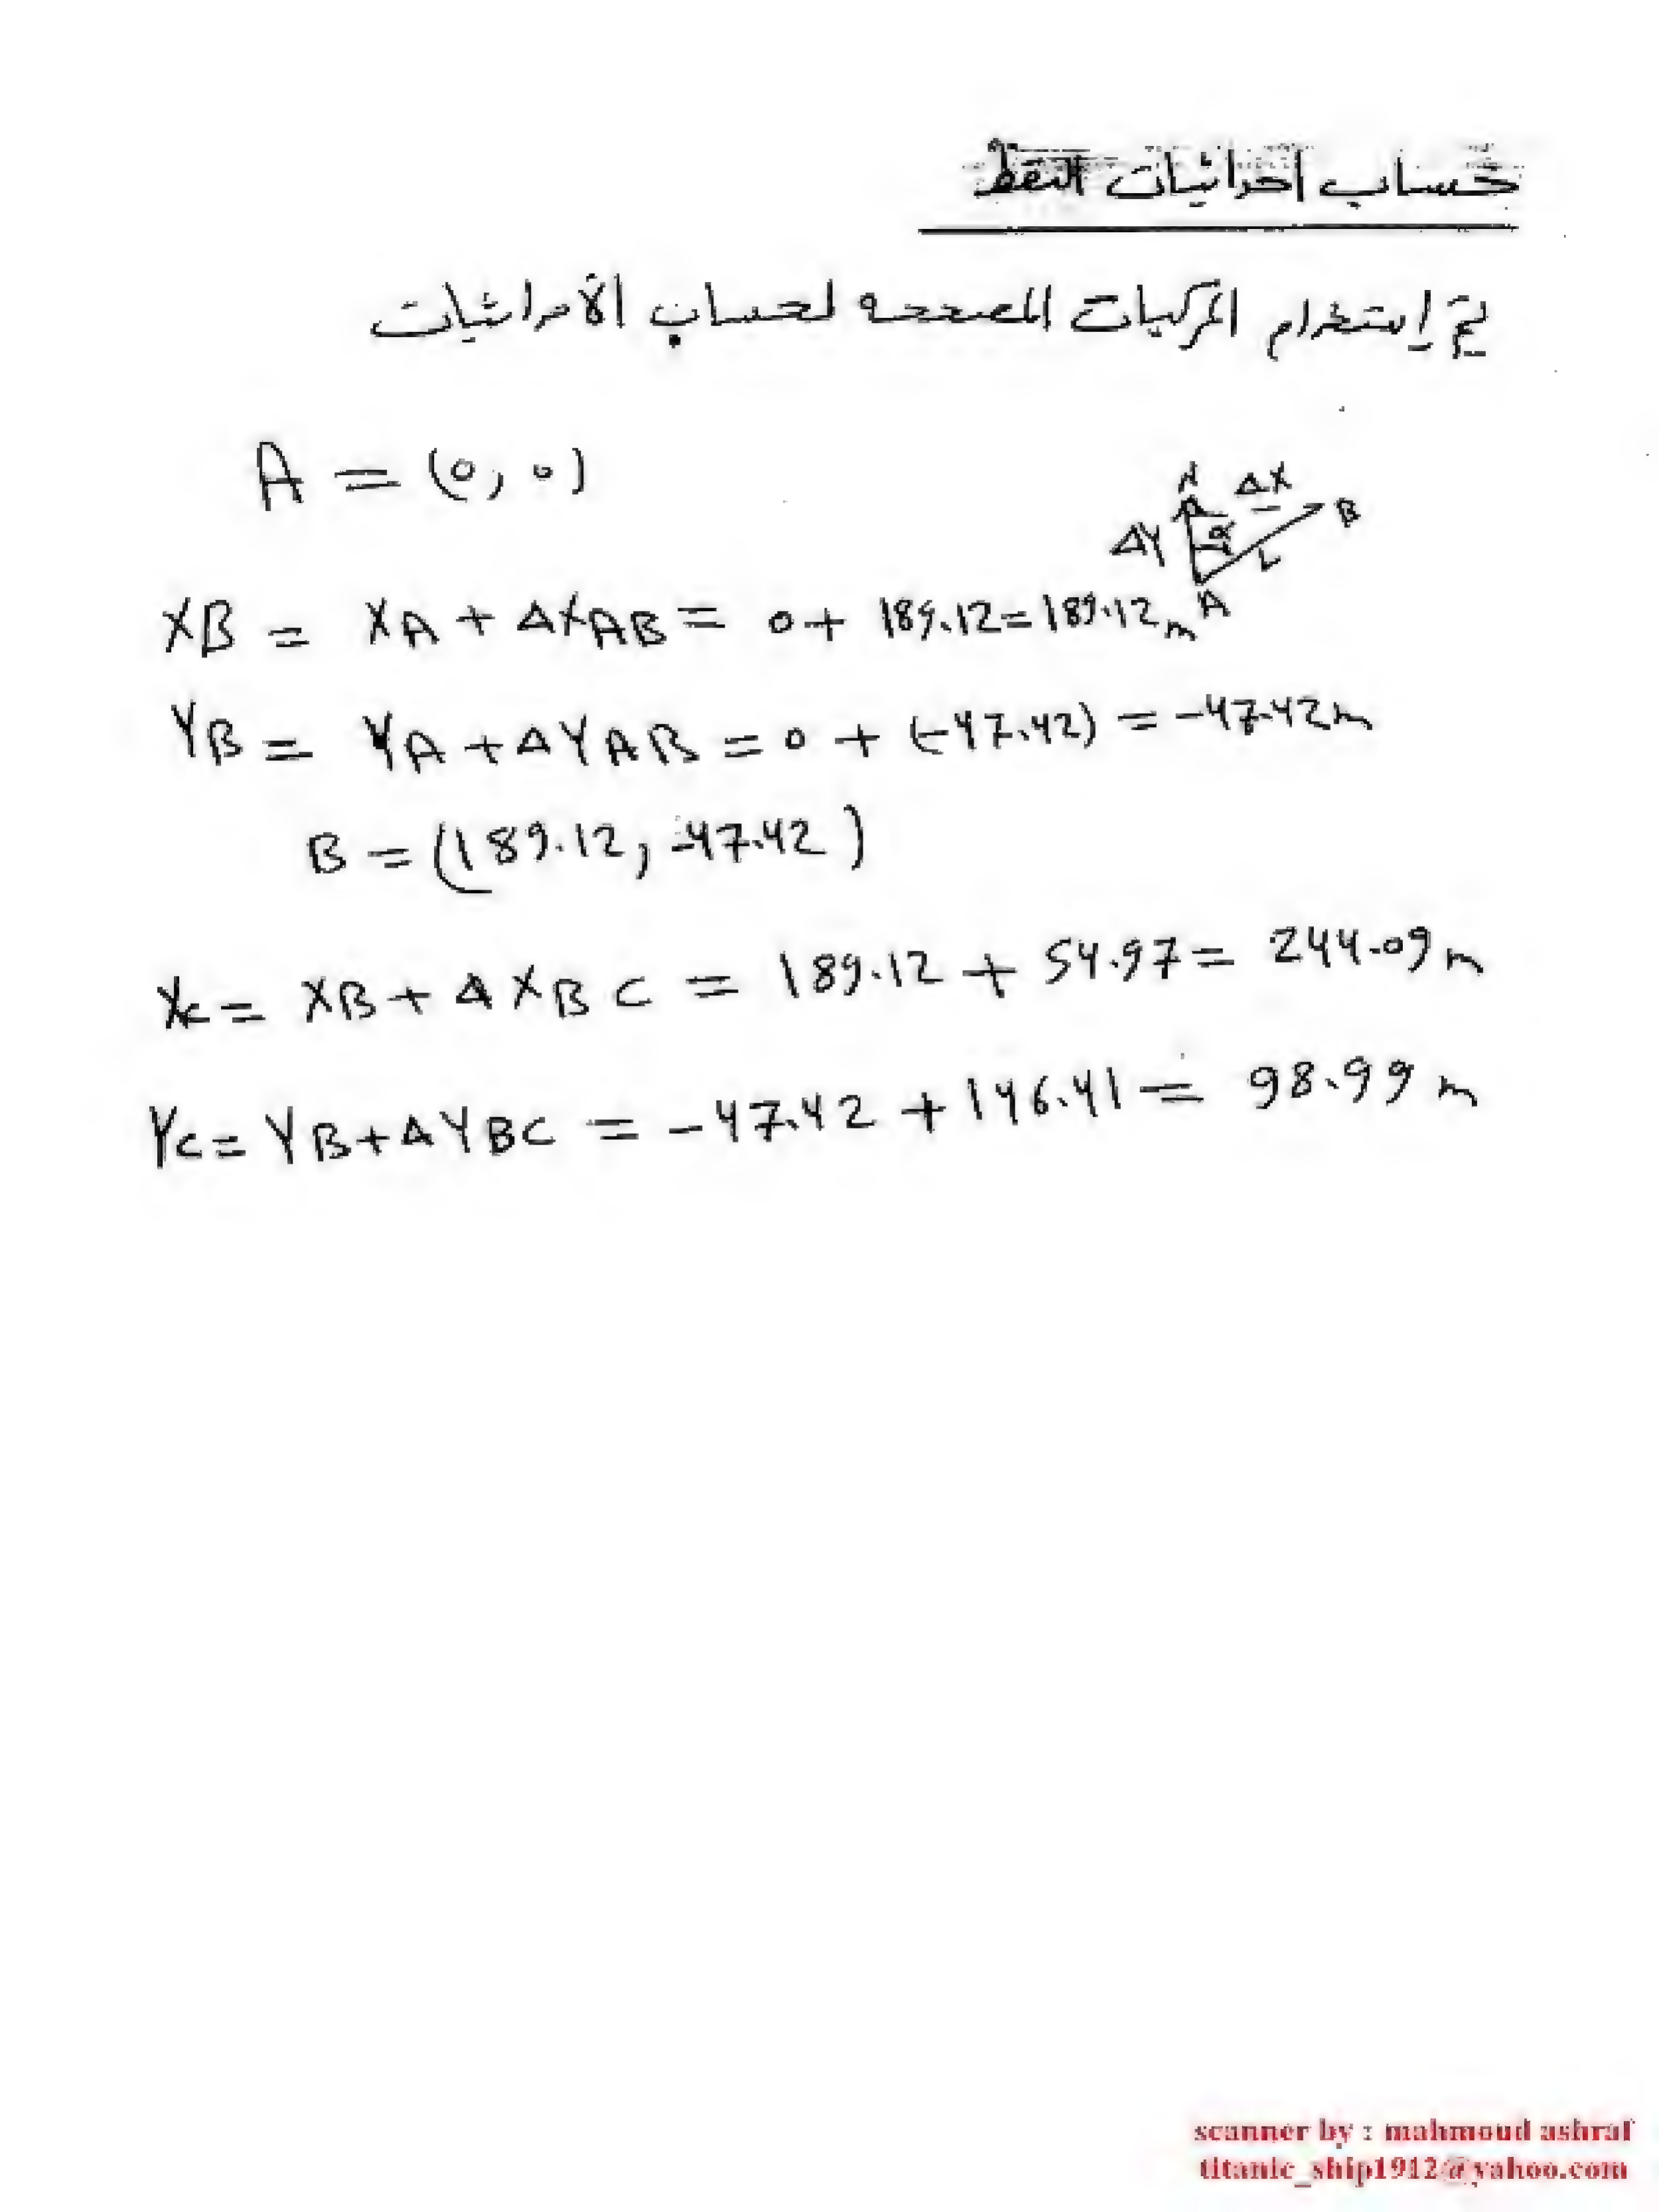 حساب احداثيات النقط
يتم إستخدام المركبات المصححه لحساب الأحداثيات
A = (0, 0)
N ΔX B
ΔY α L
A
XB = XA + ΔXAB = 0 + 189.12 = 189.12 m
YB = YA + ΔYAB = 0 + (-47.42) = -47.42 m
B = (189.12, -47.42)
Xc = XB + ΔXBC = 189.12 + 54.97 = 244.09 m
Yc = YB + ΔYBC = -47.42 + 146.41 = 98.99 m
scanner by : mahmoud ashraf
titanic_ship1912@yahoo.com